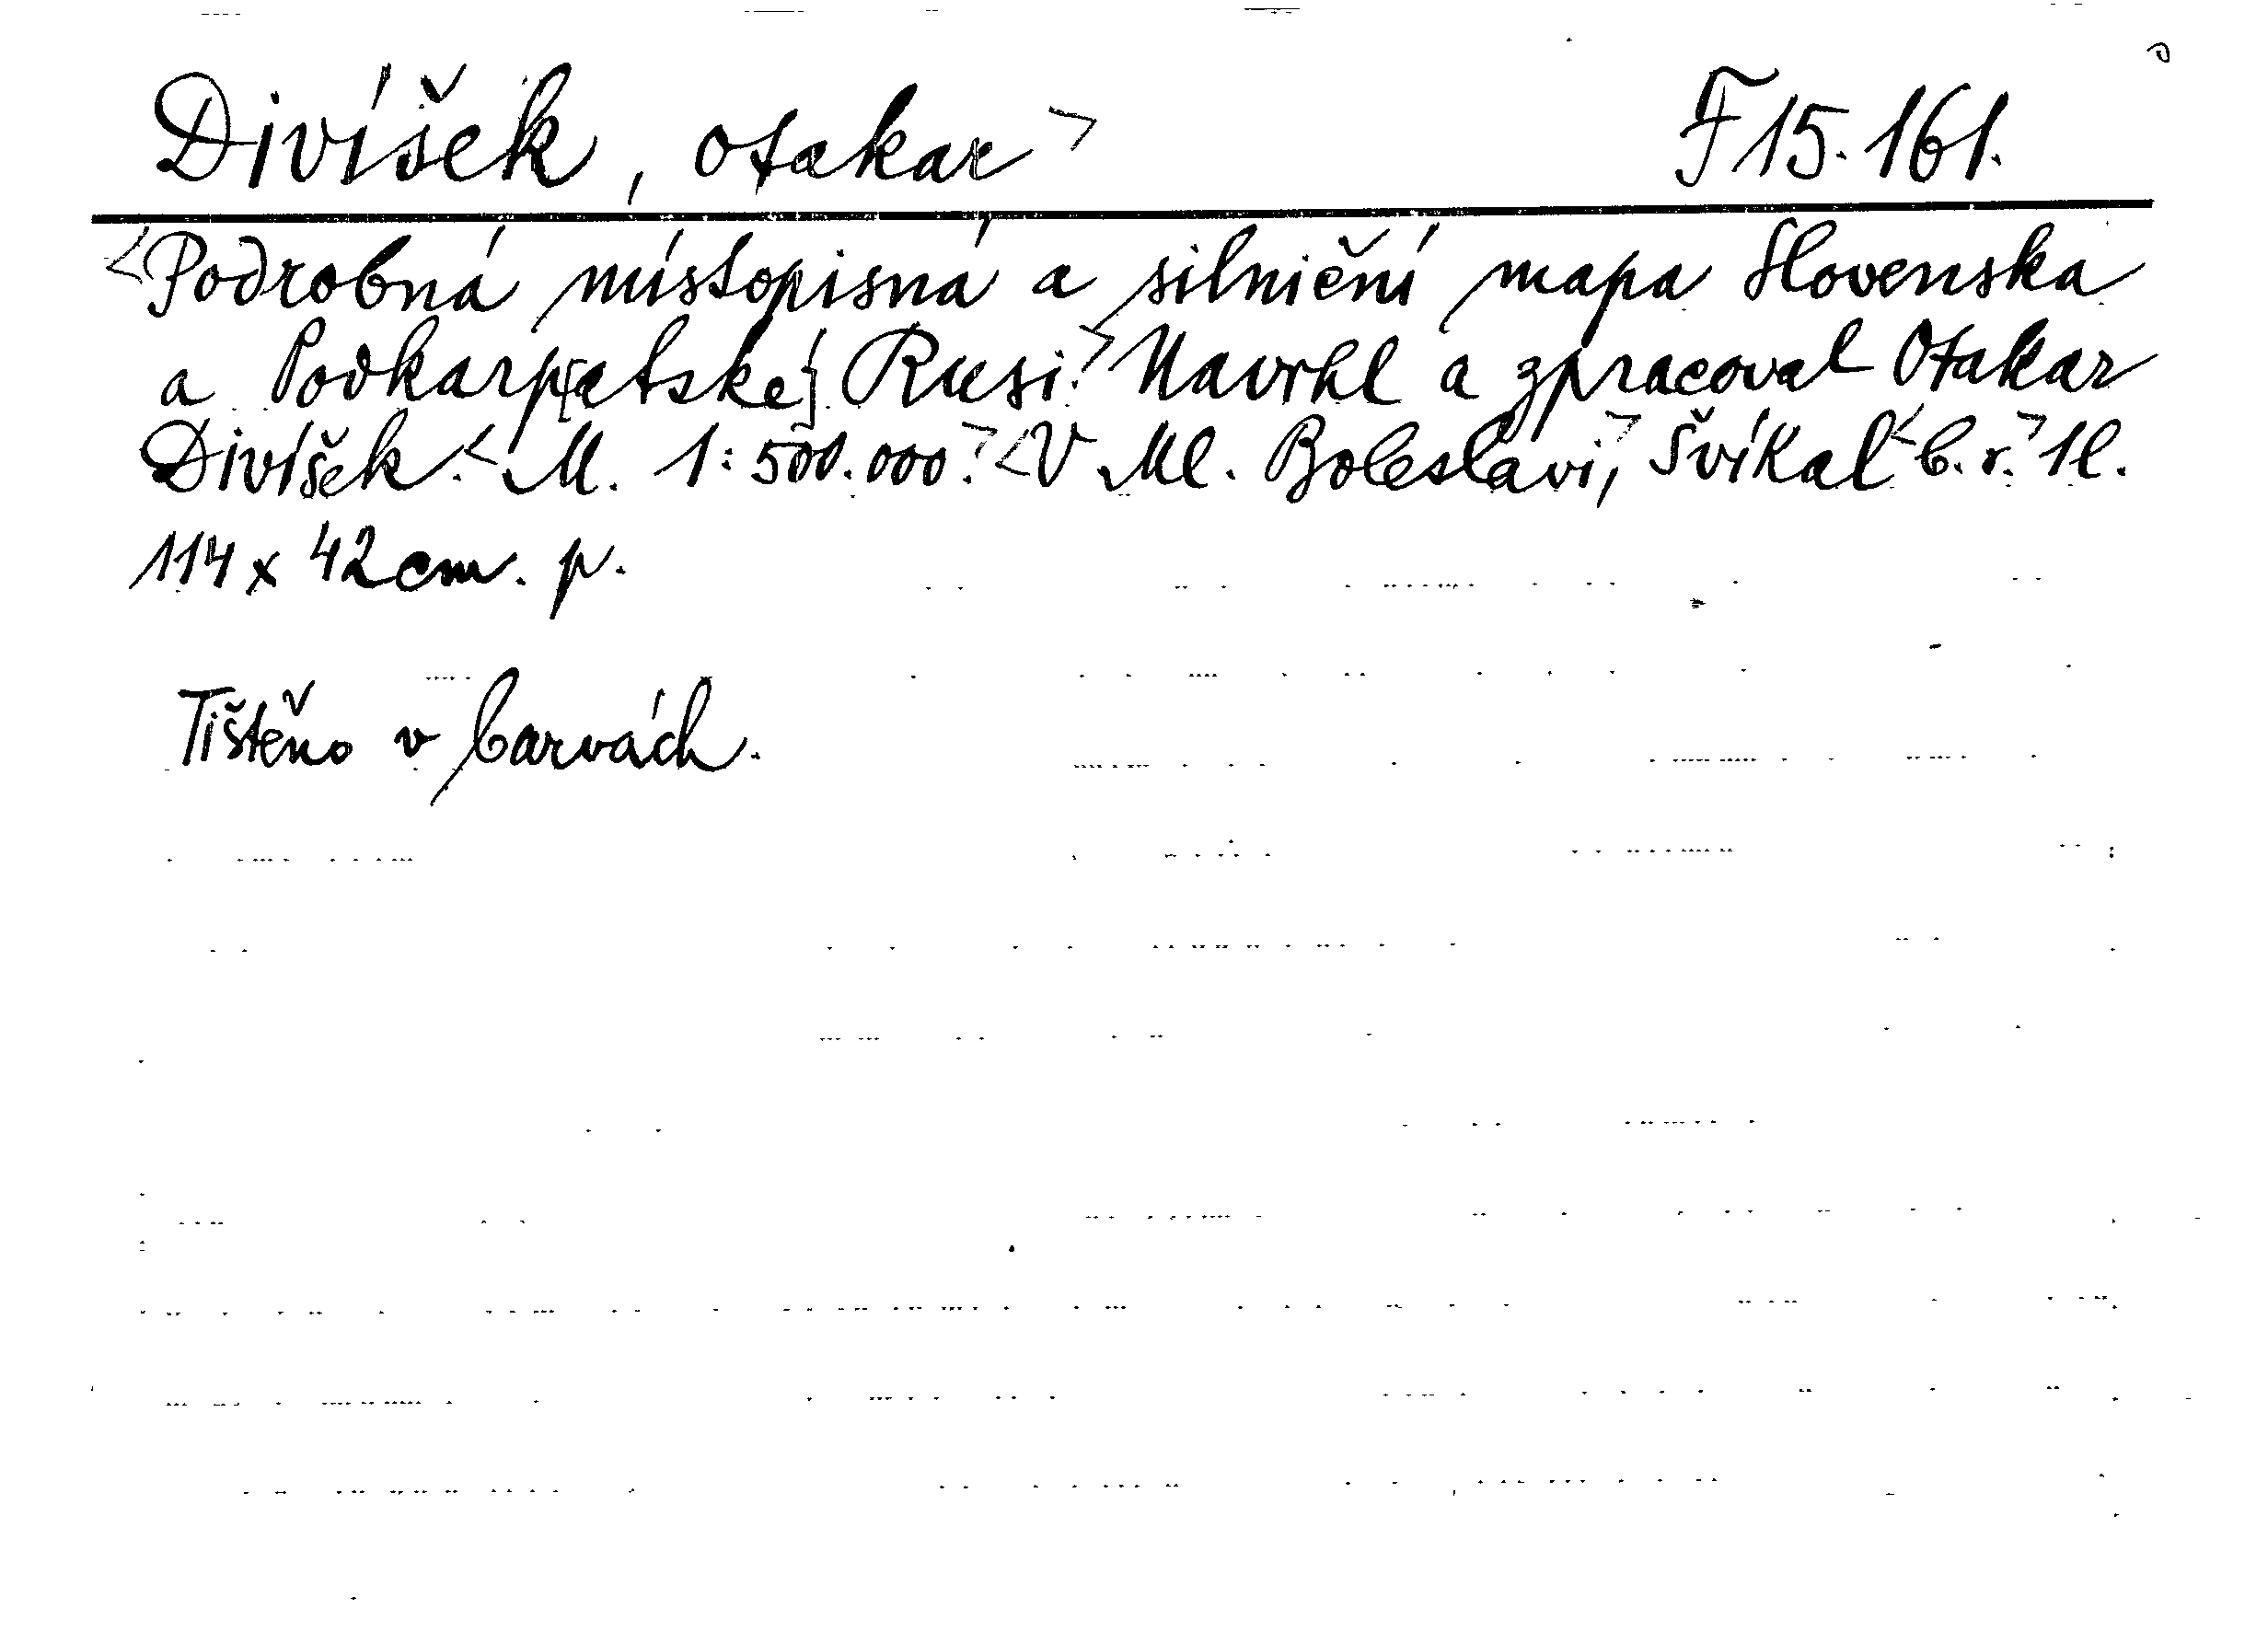 Divíšek, Otakar> F 15.161.
<Podrobná místopisná a silniční mapa Slovenska
a Podkarp[atské] Rusi.> Navrhl a zpracoval Otakar
Divíšek.< M. 1:500.000.> <V Ml. Boleslavi,> Švíkal< b. r.> 1l.
114 x 42 cm. p.
Tištěno v barvách.